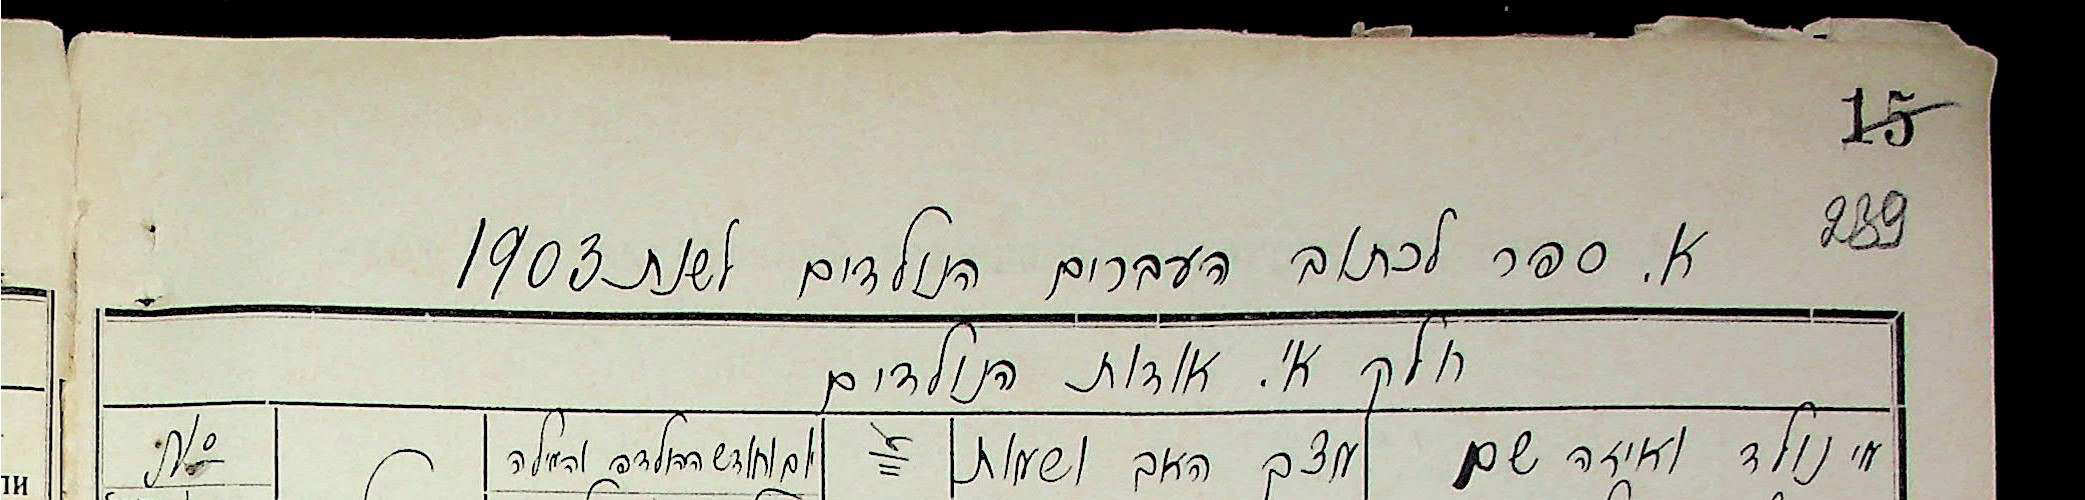 15
239
א. ספר לכתוב העברים הנולדים לשנת 1903
חלק א׳. אודות הנולדים
מי נולד ואיזה שם
מצב האב ושמות
יום וחודש ההולדה והמילה
ли